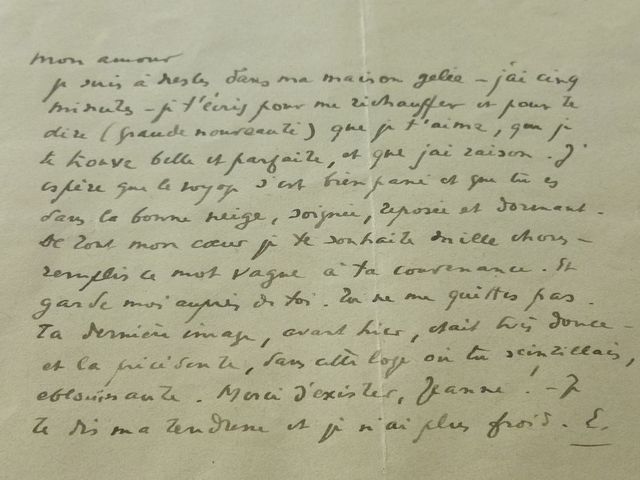 mon amour
je suis à Nesles dans ma maison gelée – j'ai cinq
minutes – je t'écris pour me réchauffer et pour te
dire (grande nouveauté) que je t'aime, que je
te trouve belle et parfaite, et que j'ai raison. J'
espère que le voyage s'est bien passé et que tu es
dans la bonne neige, soignée, reposée et dormant.
De tout mon cœur je te souhaite mille choses –
remplis ce mot vague à ta convenance. Et
garde moi auprès de toi. Tu ne me quittes pas.
Ta dernière image, avant hier, était très douce –
et la précédente, dans cette loge où tu scintillais,
éblouissante. Merci d'exister, Jeanne. – Je
te dis ma tendresse et je n'ai plus froid. E.